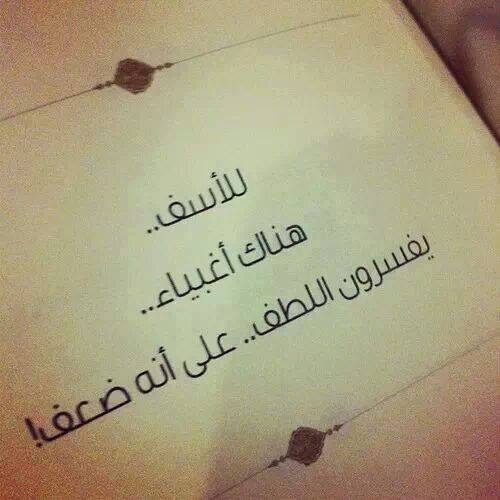 للأسف..
هناك أغبياء..
يفسرون اللطف.. على أنه ضعف!